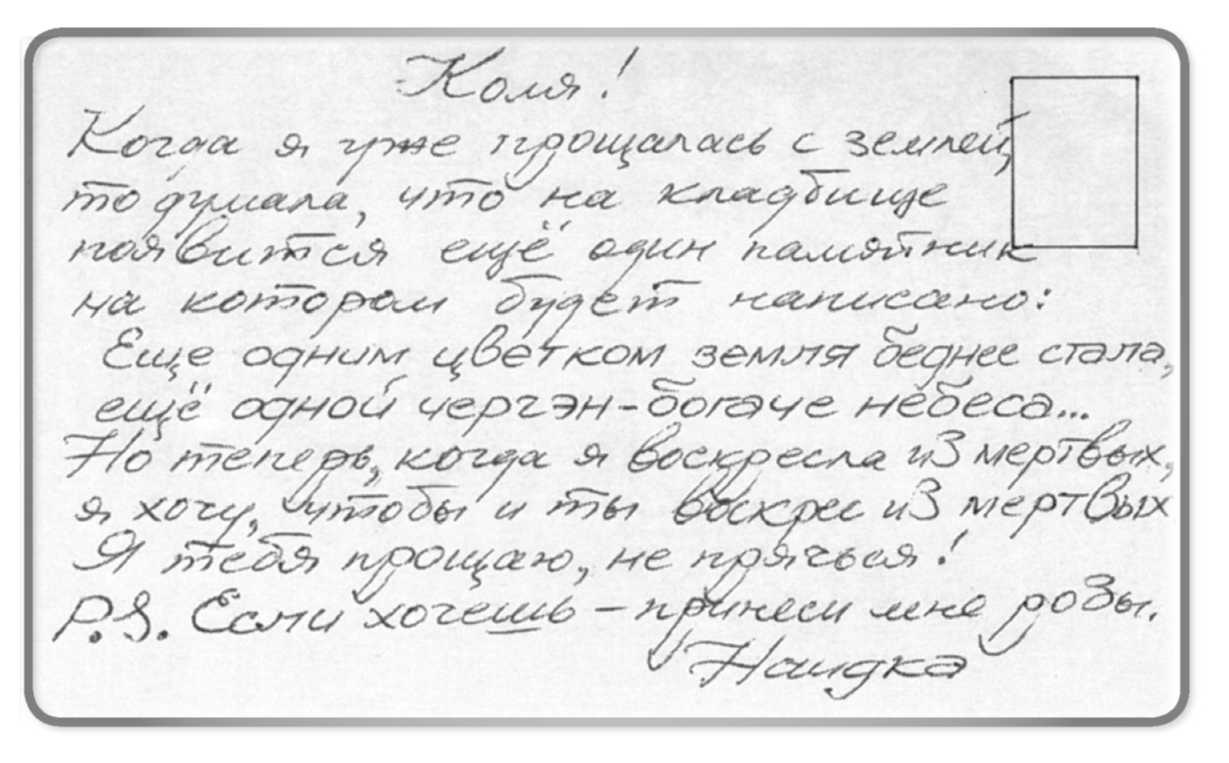 Коля!
Когда я уже прощалась с землей,
то думала, что на кладбище
появится ещё один памятник
на котором будет написано:
Еще одним цветком земля беднее стала,
ещё одной чергэн-богаче небеса...
Но теперь, когда я воскресла из мертвых,
я хочу, чтобы и ты воскрес из мертвых
Я тебя прощаю, не прячься!
P.S. Если хочешь – принеси мне розы.
Наидка